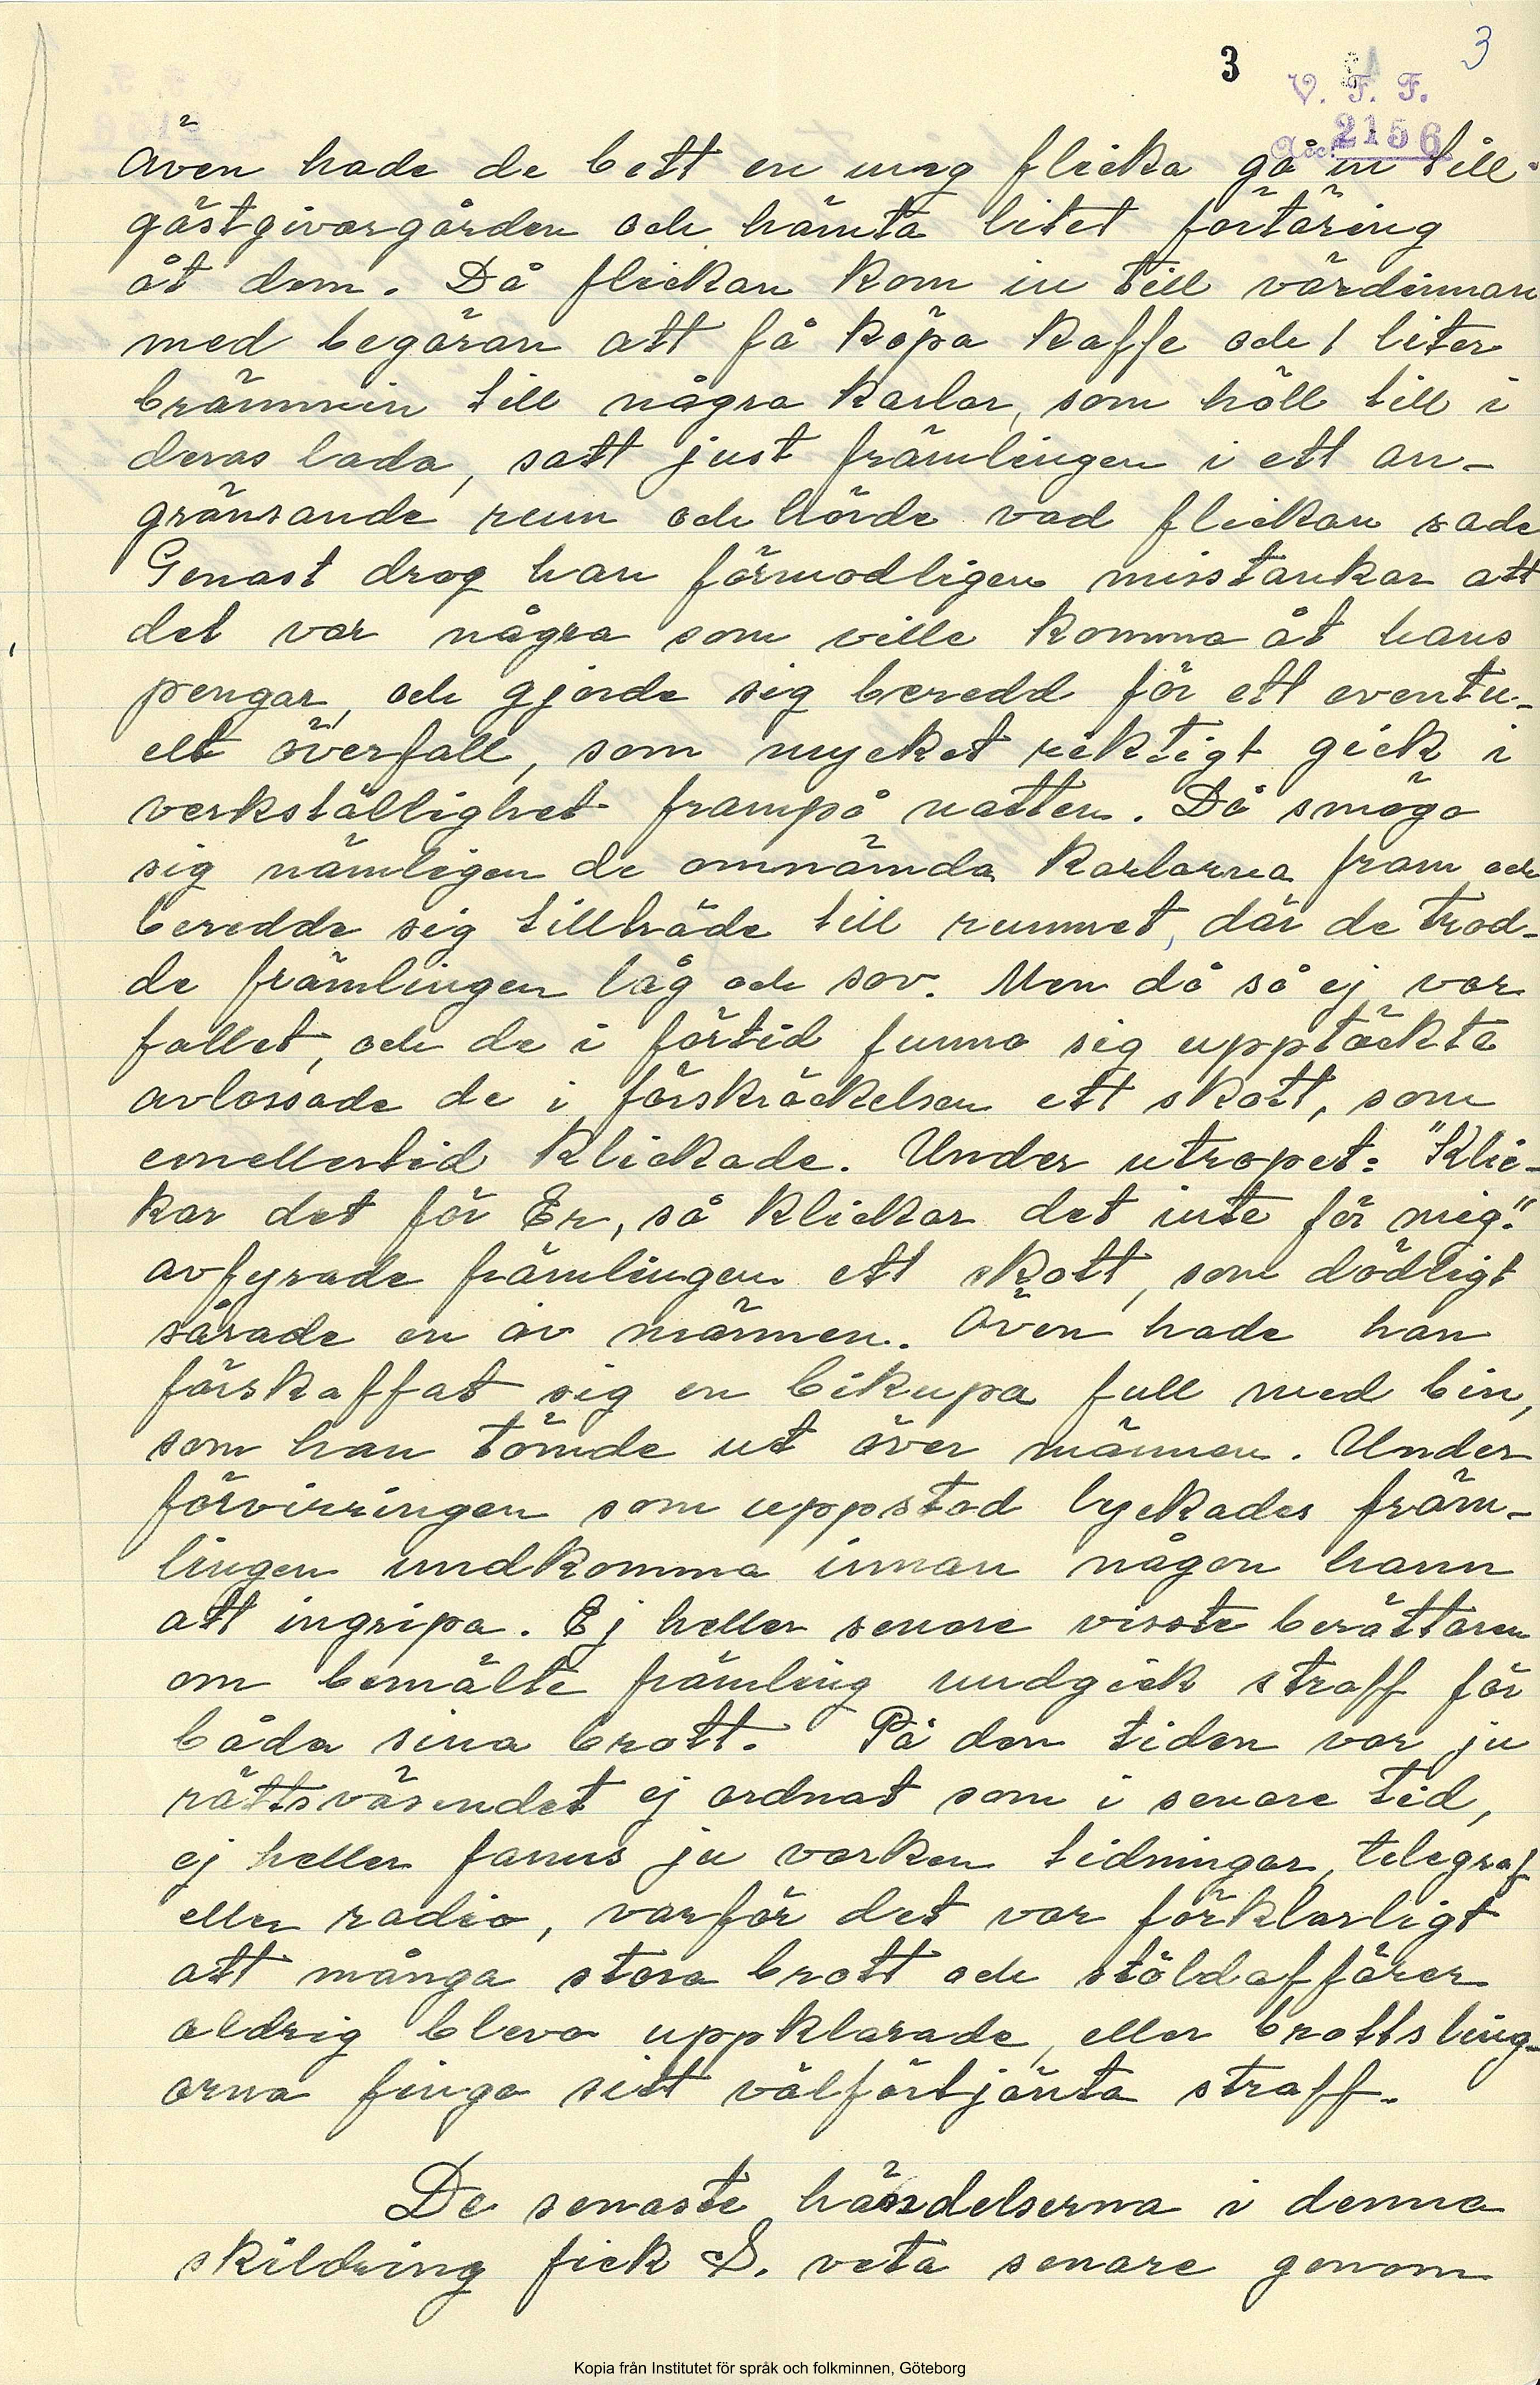 3
3
V. F. F.
Acc. 2156
Även hade de bett en ung flicka gå in till
gästgivargården och hämta litet förtäring
åt dem. Då flickan kom in till värdinnan
med begäran att få köpa kaffe och 1 liter
brännvin till några karlar, som höll till i
deras lada, satt just främlingen i ett an-
gränsande rum och hörde vad flickan sade
Genast drog han förmodligen misstankar att
det var några som ville komma åt hans
pengar, och gjorde sig beredd för ett eventu-
elt överfall, som mycket riktigt gick i
verkställighet frampå natten. Då smögo
sig nämligen de omnämda karlarna fram och
beredde sig tillträde till rummet, där de trod-
de främlingen låg och sov. Men då så ej var
fallet, och de i förtid funno sig upptäckta
avlossade de i förskräckelsen ett skott, som
emellertid klickade. Under utropet: "Klic-
kar det för Er, så klickar det inte för mig."
avfyrade främlingen ett skott, som dödligt
sårade en av männen. Även hade han
förskaffat sig en bikupa full med bin,
som han tömde ut över männen. Under
förvirringen som uppstod lyckades främ-
lingen undkomma innan någon hann
att ingripa. Ej heller senare visste berättaren
om bemälte främling undgick straff för
båda sina brott. På den tiden var ju
rättsväsendet ej ordnat som i senare tid,
ej heller fanns ju varken tidningar, telegraf
eller radio, varför det var förklarligt
att många stora brott och stöldaffärer
aldrig blevo uppklarade, eller brottsling-
arna fingo sitt välförtjänta straff.
De senaste händelserna i denna
skildring fick S. veta senare genom
Kopia från Institutet för språk och folkminnen, Göteborg